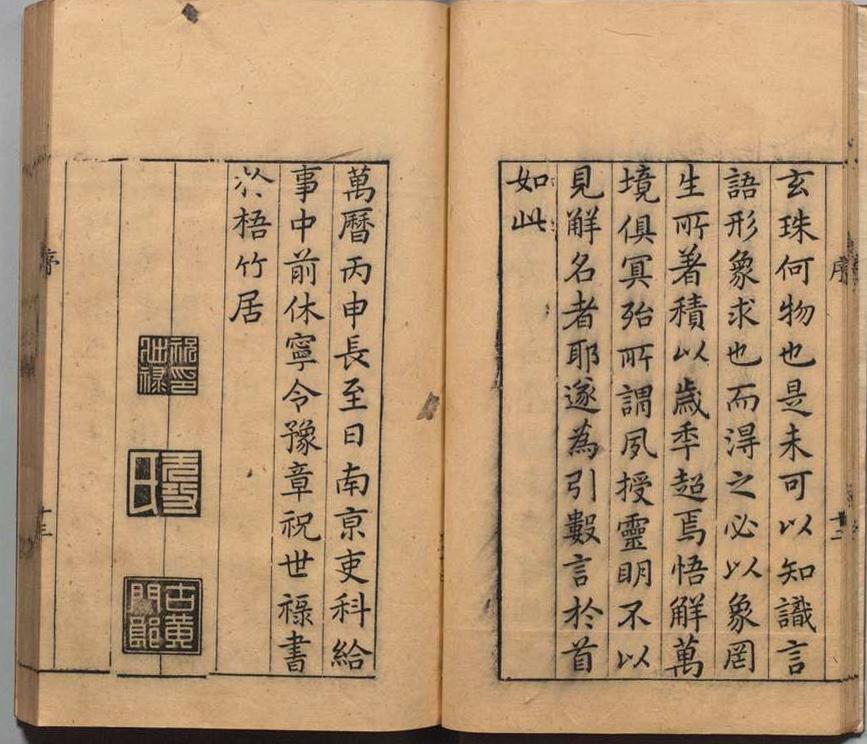 序
十二
玄珠何物也是未可以知識言
語形象求也而淂之必以象罔
生所著積以歲秊超焉悟解萬
境俱冥殆所謂夙授靈明不以
見解名者耶遂為引數言於首
如此
萬曆丙申長至日南京吏科給
事中前休寧令豫章祝世祿書
於梧竹居
祝印世祿
古黄門郎
序
十三